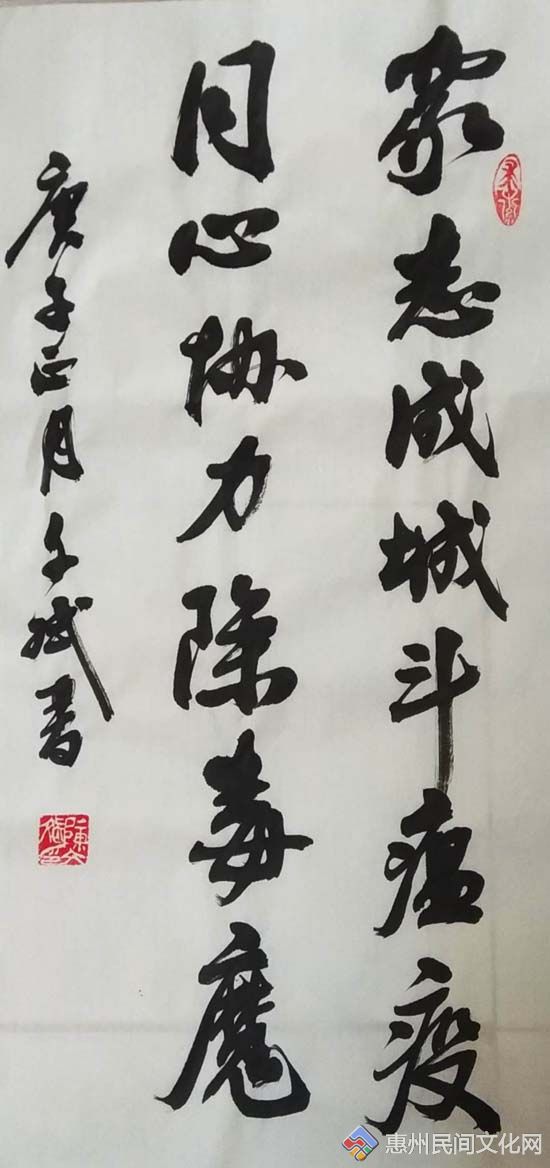 众志成城斗瘟疫
同心协力除毒魔
庚子正月 文斌书
惠州民间文化网